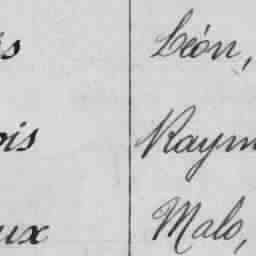 is Léon,
ois Raym
ux Malo,